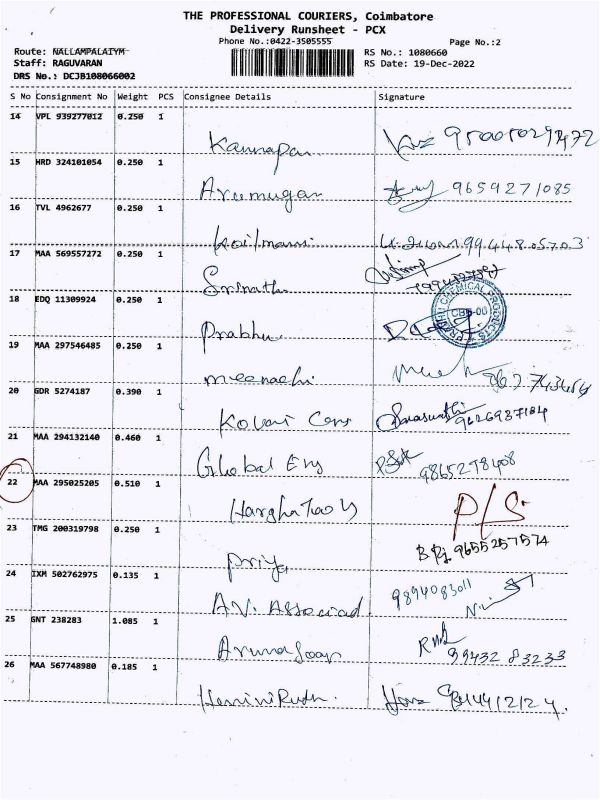 THE PROFESSIONAL COURIERS, Coimbatore
Delivery Runsheet - PCX
Phone No.:0422-3505555 Page No.:2
Route: NALLAMPALAIYM RS No.: 1080660
Staff: RAGUVARAN RS Date: 19-Dec-2022
DRS No.: DCJB108066002
S No Consignment No Weight PCS Consignee Details Signature
14 VPL 939277012 0.250 1
Kannapan
15 HRD 324101054 0.250 1
Arumugan 9659271085
16 TVL 4962677 0.250 1
9944805703
17 MAA 569557272 0.250 1
Srinath
18 EDQ 11309924 0.250 1
Prabhu
CHEMICAL PRODUCTS
CBE-06
19 MAA 297546485 0.250 1
meenachi
20 GDR 5274187 0.390 1
Kovai Cons Saraswathi
9626937184
21 MAA 294132140 0.460 1
Global Eng 9865278408
22 MAA 295025205 0.510 1
P/S
23 TMG 200319798 0.250 1
Priya 9655257574
24 IXM 502762975 0.135 1
A.V. Associad. 9894083011
25 GNT 238283 1.085 1
99432 83233
26 MAA 567748980 0.185 1